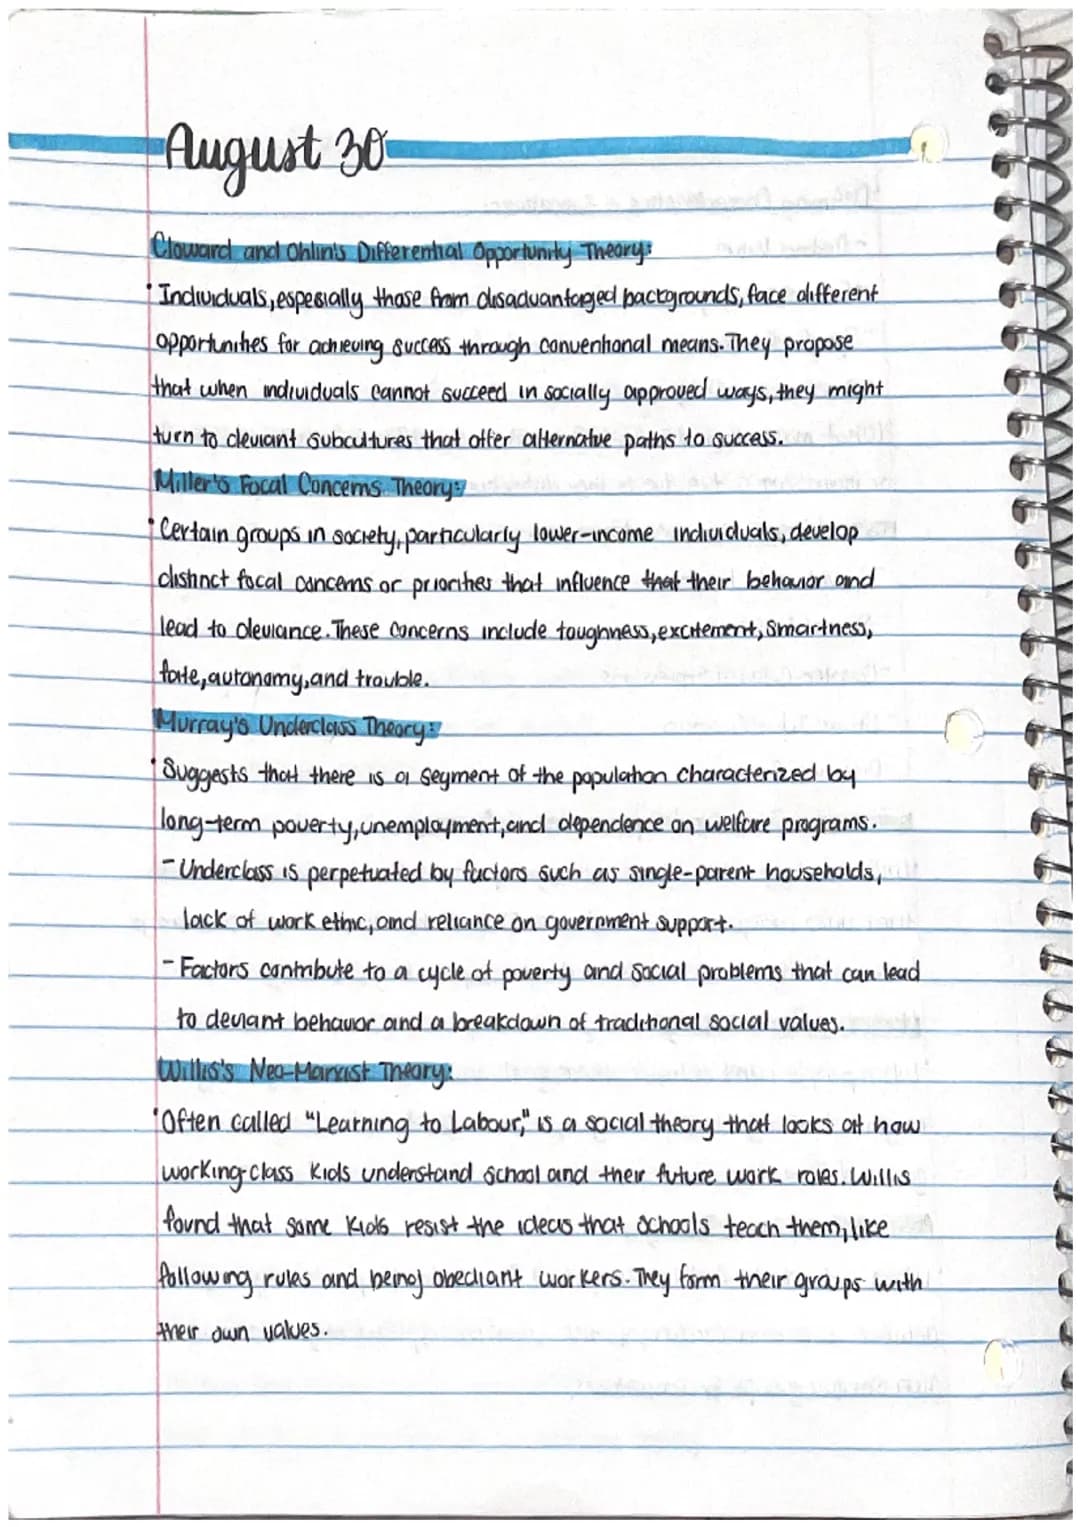 August 30
Cloward and Ohlin's Differential Opportunity Theory:
• Individuals, espesially those from disadvantaged backgrounds, face different
opportunities for achieving success through conventional means. They propose
that when individuals cannot succeed in socially approved ways, they might
turn to deviant subcultures that offer alternative paths to success.
Miller's Focal Concerns Theory:
• Certain groups in society, particularly lower-income individuals, develop
distinct focal concerns or priorities that influence that their behavior and
lead to deviance. These concerns include toughness, excitement, smartness,
fate, autonomy, and trouble.
Murray's Underclass Theory:
• Suggests that there is a segment of the population characterized by
long-term poverty, unemployment, and dependence on welfare programs.
- Underclass is perpetuated by factors such as single-parent households,
lack of work ethic, and reliance on government support.
- Factors contribute to a cycle of poverty and social problems that can lead
to deviant behavior and a breakdown of traditional social values.
Willis's Neo-Marxist Theory:
• Often called "Learning to Labour," is a social theory that looks at how
working-class kids understand school and their future work roles. Willis
found that some kids resist the ideas that schools teach them, like
following rules and being obediant workers. They form their groups with
their own values.